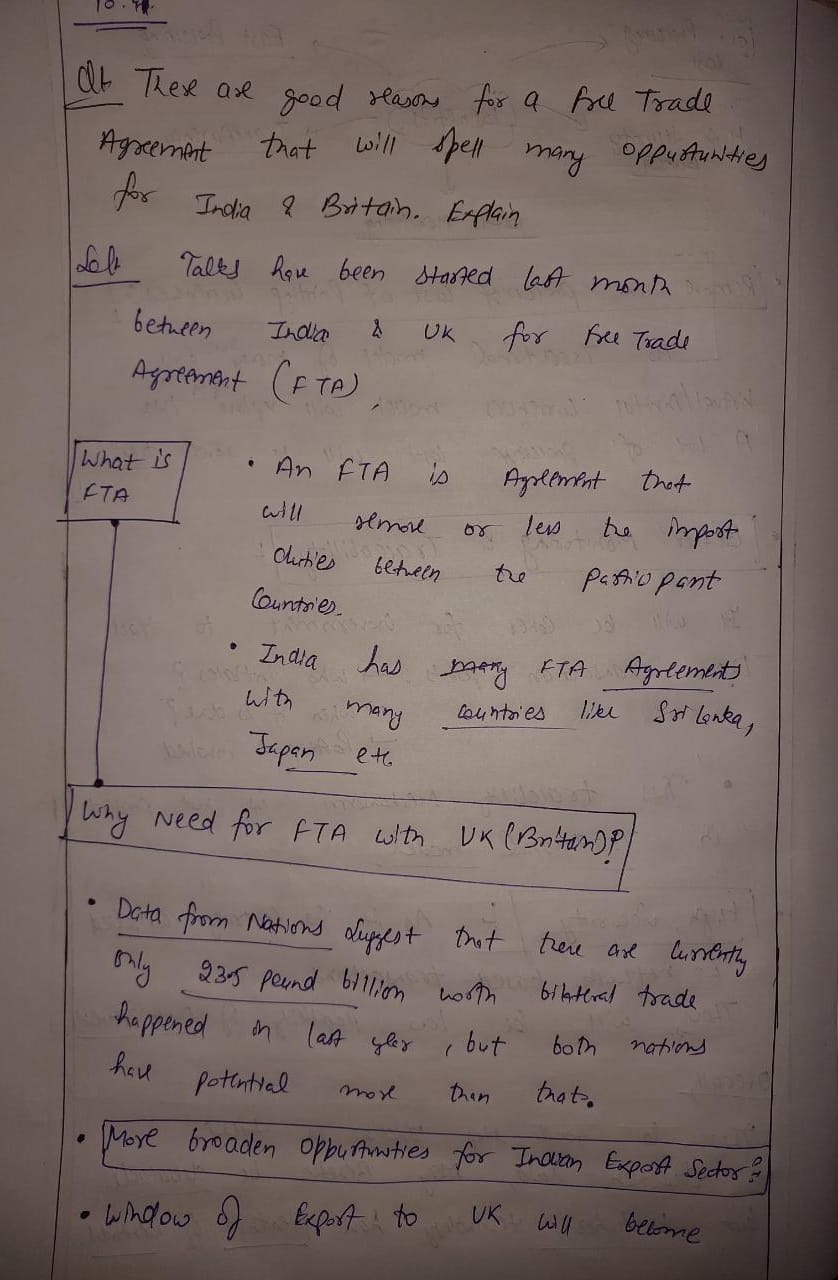 Q1 There are good reasons for a free Trade
Agreement that will spell many oppurtunities
for India & Britain. Explain
Sol: Talks have been started last month
between India & UK for free Trade
Agreement (FTA).
What is
FTA
• An FTA is Agreement that
will remove or less the import
duties between the participant
Countries.
• India has many FTA Agreements
with many countries like Sri Lanka,
Japan etc
Why Need for FTA with UK (Britan)?
• Data from Nations suggest that there are currently
only pound billion worth bilateral trade
happened in last year, but both nations
have potential more than that.
• More broaden oppurtunties for Indian Export Sector:
• Window of Export to UK will become